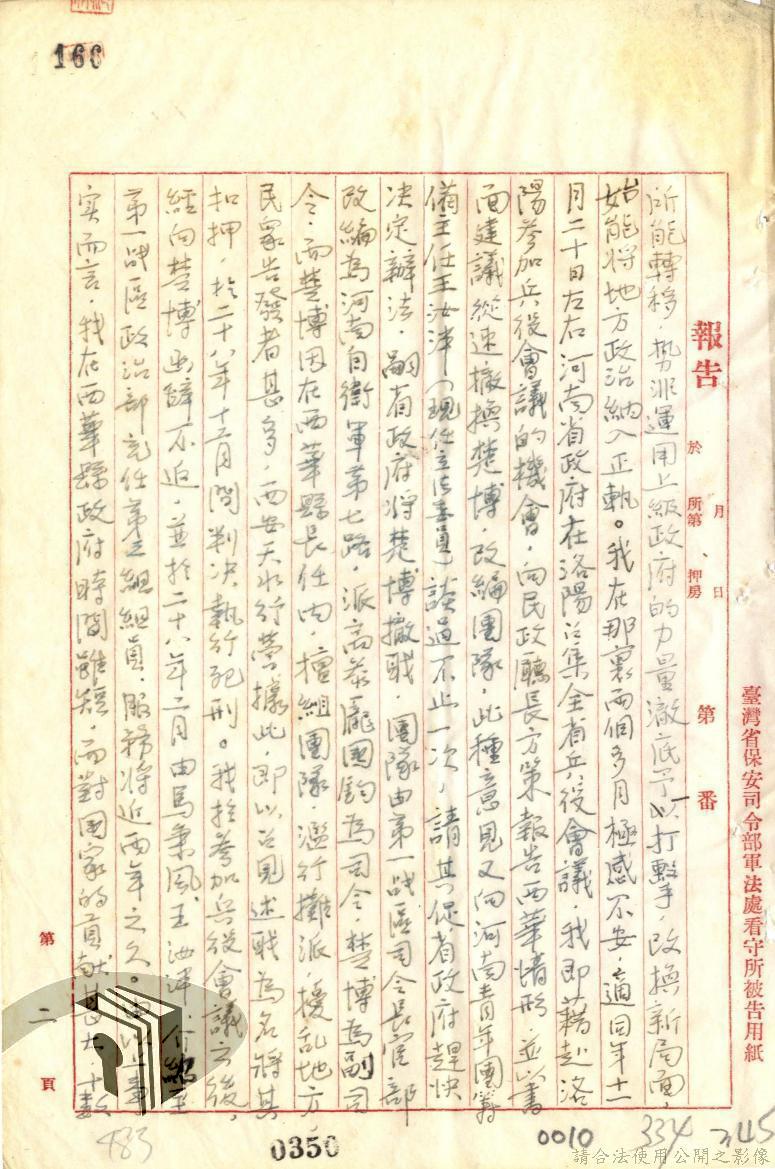 166
臺灣省保安司令部軍法處看守所被告用紙
報告 於 月 日 所第 押房 第 番
所能轉移，勢非運用上級政府的力量澈底予以打擊，改換新局面，
始能將地方政治納入正軌。我在那裏兩個多月極感不安，適同年十一
月二十日左右河南省政府在洛陽召集全省兵役會議，我即藉赴洛
陽參加兵役會議的機會，向民政廳長方策報告西華情形，並以書
面建議從速撤換楚博，改編團隊，此種意見又向河南青年團籌
備主任王汝泮（現任立法委員）談過不止一次，請其促省政府趕快
決定辦法，嗣省政府將楚博撤職，團隊由第一战區司令長官部
改編為河南自衛軍第七路，派高恭龐國鈞為司令，楚博為副司
令，而楚博因在西華縣長任內，擅組團隊，濫行攤派，擾乱地方，
民眾告發者甚多，西安天水行營據此，即以召見述职為名將其
扣押，於二十八年十二月間判決執行死刑。我於參加兵役會議之後，
經向楚博函辭不返，並於二十八年二月由馬乘風王汝泮介紹至
第一战區政治部充任第三組組員，服務將近兩年之久。由以上事
实而言，我在西華縣政府時間雖短，而對國家的貢献甚大
第 二 頁
483
0350
0010
334
請合法使用公開之影像